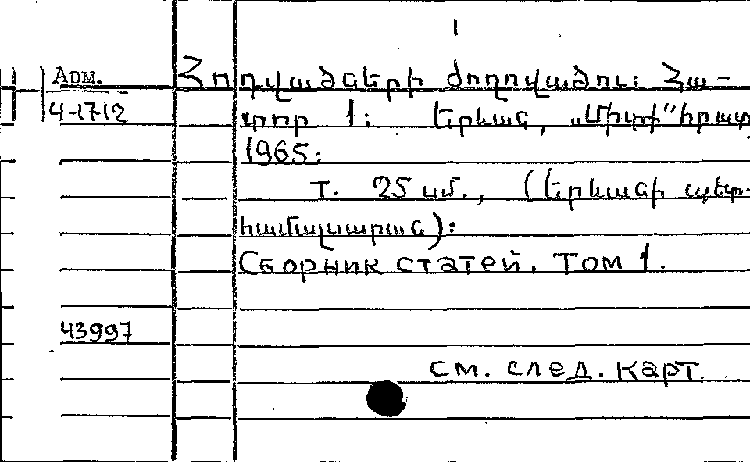 1
Арм. Հոդվածների ժողովածու: Հա-
4-1712 տոր 1: Երևան, „Միտք" հրատ
1965:
т. 25 սմ., (Երևանի պետ.
համալսարան):
Сборник статей. Том 1.
43997
см. след. карт